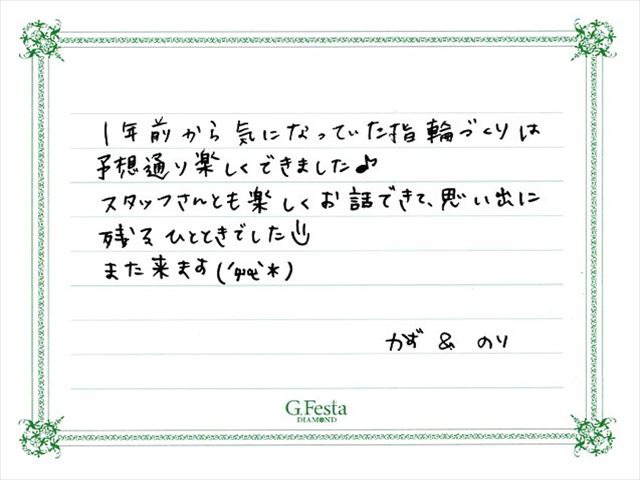 1年前から気になっていた指輪づくりは
予想通り楽しくできました♪
スタッフさんとも楽しくお話できて、思い出に
残るひとときでした
また来ます(´ω`*)
かず & のり
G.Festa
DIAMOND